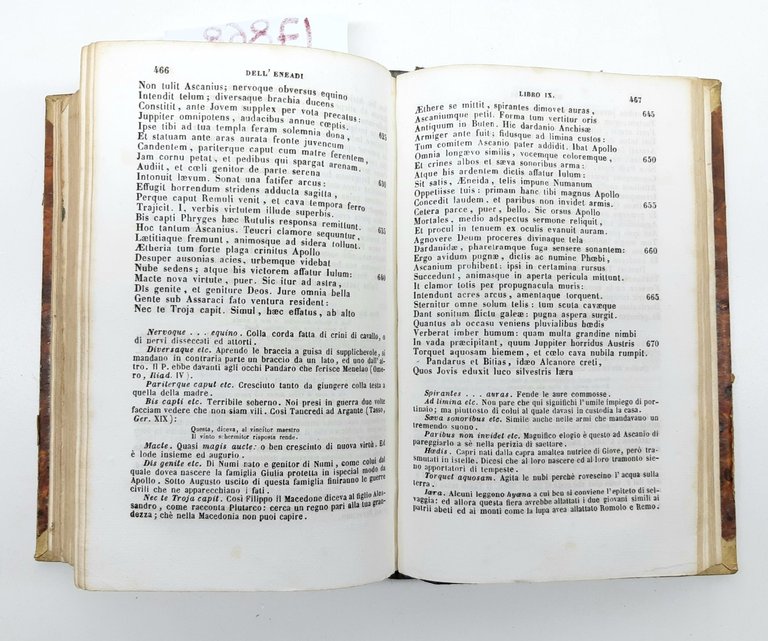 17868
466
DELL' ENEADI
Non tulit Ascanius; nervoque obversus equino
Intendit telum; diversaque brachia ducens
Constitit, ante Jovem supplex per vota precatus:
Juppiter omnipotens, audacibus annue cœptis.
Ipse tibi ad tua templa feram solemnia dona, 625
Et statuam ante aras aurata fronte juvencum
Candentem, pariterque caput cum matre ferentem,
Jam cornu petat, et pedibus qui spargat arenam.
Audiit, et cœli genitor de parte serena
Intonuit lævum. Sonat una fatifer arcus: 630
Effugit horrendum stridens adducta sagitta,
Perque caput Remuli venit, et cava tempora ferro
Trajicit. I, verbis virtutem illude superbis.
Bis capti Phryges hæc Rutulis responsa remittunt.
Hoc tantum Ascanius. Teucri clamore sequuntur, 635
Lætitiaque fremunt, animosque ad sidera tollunt.
Ætheria tum forte plaga crinitus Apollo
Desuper ausonias acies, urbemque videbat
Nube sedens; atque his victorem affatur Iulum:
Macte nova virtute, puer. Sic itur ad astra, 640
Dîs genite, et geniture Deos. Jure omnia bella
Gente sub Assaraci fato ventura resident:
Nec te Troja capit. Simul, hæc effatus, ab alto
Nervoque . . . equino. Colla corda fatta di crini di cavallo, o
di nervi disseccati ed attorti.
Diversaque etc. Aprendo le braccia a guisa di supplichevole, si
mandano in contraria parte un braccio da un lato, ed uno dall'al-
tro. Il P. ebbe davanti agli occhi Pandaro che ferisce Menelao (Ome-
ro, Iliad. IV).
Pariterque caput etc. Cresciuto tanto da giungere colla testa a
quella della madre.
Bis capti etc. Terribile scherno. Noi presi in guerra due volte
facciam vedere che non siam vili. Così Tancredi ad Argante (Tasso,
Ger. XIX):
Questa, diceva, al vincitor maestro
Il vinto schermitor risposta rende.
Macte. Quasi magis aucte: o ben cresciuto di nuova virtù. Ed
è lode insieme ed augurio.
Dîs genite etc. Di Numi nato e genitor di Numi, come colui dal
quale dovea nascere la famiglia Giulia protetta in ispecial modo da
Apollo. Sotto Augusto uscito di questa famiglia finiranno le guerre
civili che ne apparecchiano i fati.
Nec te Troja capit. Così Filippo il Macedone diceva al figlio Ales-
sandro, come racconta Plutarco: cerca un regno pari alla tua gran-
dezza; chè nella Macedonia non puoi capire.
LIBRO IX.
467
Æthere se mittit, spirantes dimovet auras, 645
Ascaniumque petit. Forma tum vertitur oris
Antiquum in Buten. Hic dardanio Anchisæ
Armiger ante fuit; fidusque ad limina custos:
Tum comitem Ascanio pater addidit. Ibat Apollo
Omnia longævo similis, vocemque coloremque, 650
Et crines albos et sæva sonoribus arma:
Atque his ardentem dictis affatur Iulum:
Sit satis, Æneida, telis impune Numanum
Oppetiisse tuis: primam hanc tibi magnus Apollo
Concedit laudem, et paribus non invidet armis. 655
Cetera parce, puer, bello. Sic orsus Apollo
Mortales, medio adspectus sermone reliquit,
Et procul in tenuem ex oculis evanuit auram.
Agnovere Deum proceres divinaque tela
Dardanidæ, pharetramque fuga sensere sonantem: 660
Ergo avidum pugnæ, dictis ac numine Phœbi,
Ascanium prohibent: ipsi in certamina rursus
Succedunt, animasque in aperta pericula mittunt.
It clamor totis per propugnacula muris:
Intendunt acres arcus, amentaque torquent. 665
Sternitur omne solum telis: tum scuta cavæque
Dant sonitum flictu galeæ: pugna aspera surgit.
Quantus ab occasu veniens pluvialibus hœdis
Verberat imber humum: quam multa grandine nimbi
In vada præcipitant, quum Juppiter horridus Austris 670
Torquet aquosam hiemem, et cœlo cava nubila rumpit.
Pandarus et Bitias, idæo Alcanore creti,
Quos Jovis eduxit luco silvestris Iæra
Spirantes . . . auras. Fende le aure commosse.
Ad limina etc. Non pare che qui significhi l'umile impiego di por-
tinaio; ma piuttosto di colui al quale davasi in custodia la casa.
Sæva sonoribus etc. Simile anche nelle armi che mandavano un
tremendo suono.
Paribus non invidet etc. Magnifico elogio è questo ad Ascanio di
pareggiarlo a sè nella perizia di saettare.
Hædis. Capri nati dalla capra amaltea nutrice di Giove, però tra-
smutati in istelle. Dicesi che al loro nascere ed al loro tramonto sie-
no apportatori di tempeste.
Torquet aquosam. Agita le nubi perchè rovescino l'acqua sulla
terra.
Iæra. Alcuni leggono hyæna a cui ben si conviene l'epiteto di sel-
vaggia: ed allora questa fiera avrebbe allattati i due giovani simili ai
patrii abeti ed ai monti come la lupa avea allattato Romolo e Remo.